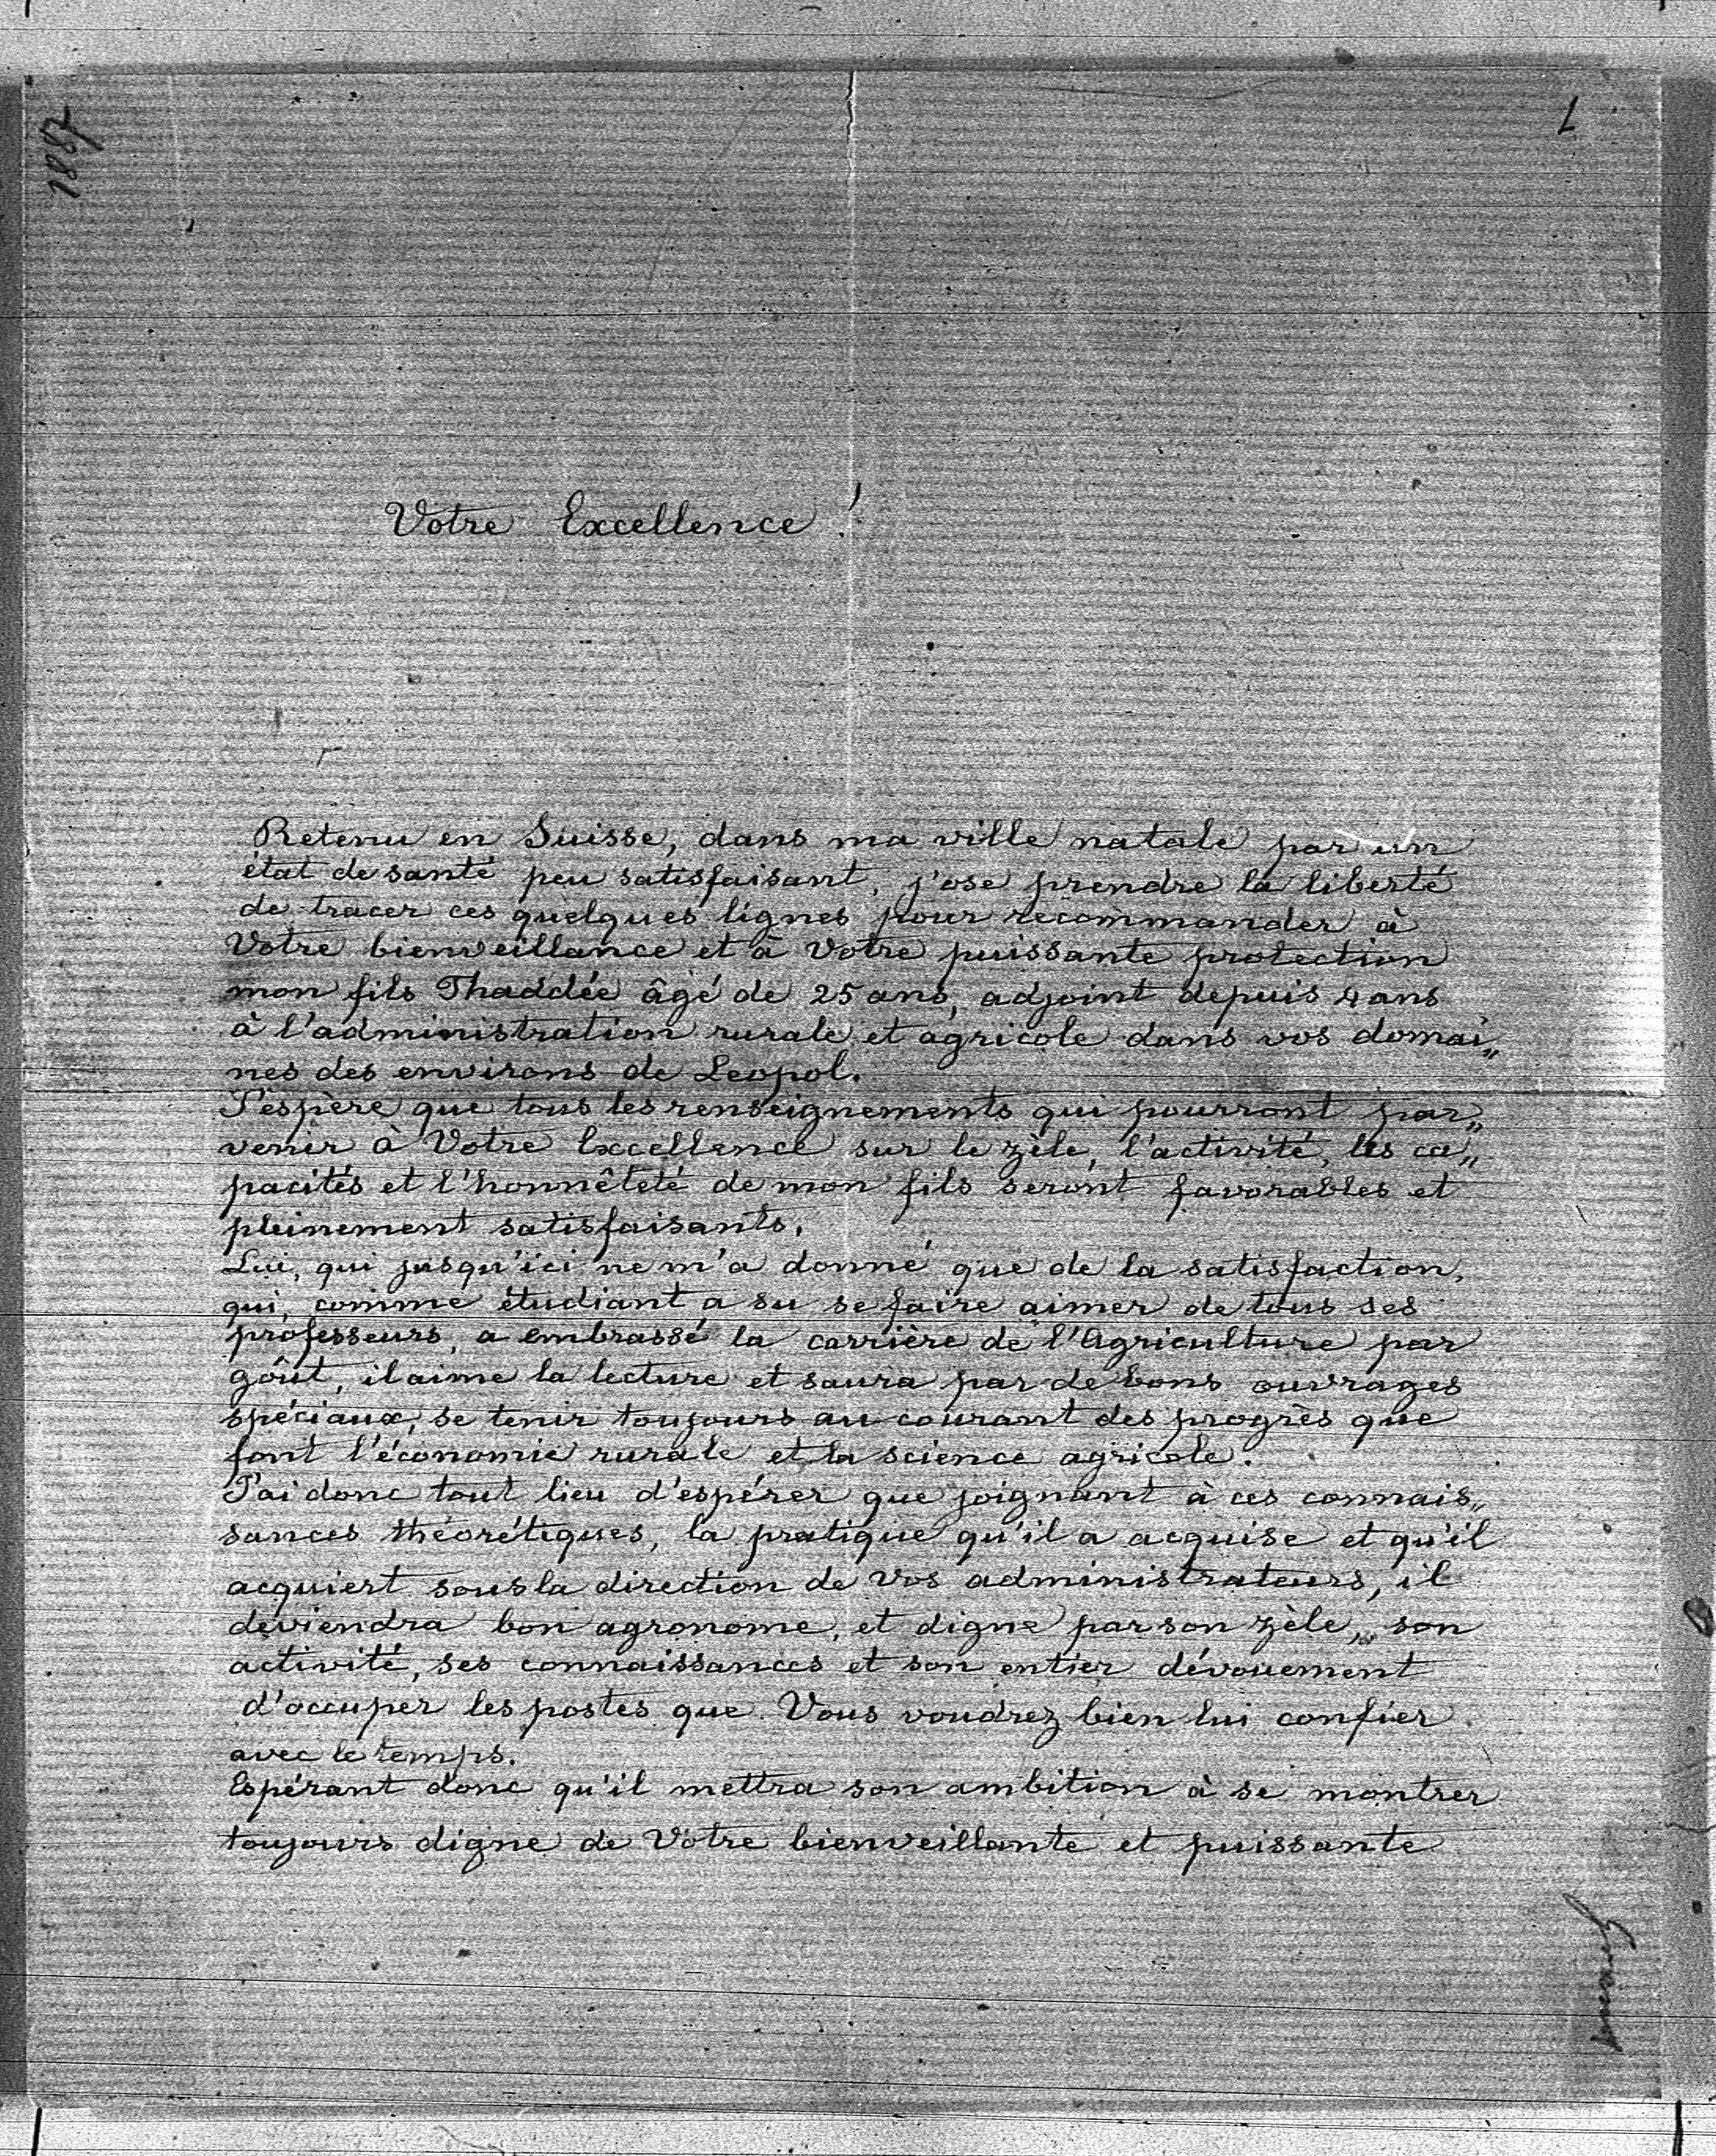 1887
1
Votre Excellence !
Retenu en Suisse, dans ma ville natale par un
état de santé peu satisfaisant, j'ose prendre la liberté
de tracer ces quelques lignes pour recommander à
Votre bienveillance et à Votre puissante protection
mon fils Thaddée âgé de 25 ans, adjoint depuis 4 ans
à l'administration rurale et agricole dans vos domai„
nes des environs de Leopol.
J'espère que tous les renseignements qui pourront par„
venir à Votre Excellence sur le zèle, l'activité, les ca„
pacités et l'honnêteté de mon fils seront favorables et
pleinement satisfaisants.
Lui, qui jusqu'ici ne m'a donné que de la satisfaction,
qui, comme étudiant a su se faire aimer de tous ses
professeurs, a embrassé la carrière de l'Agriculture par
goût, il aime la lecture et saura par de bons ouvrages
spéciaux, se tenir toujours au courant des progrès que
font l'économie rurale et la science agricole.
J'ai donc tout lieu d'espérer que joignant à ces connais„
sances théorétiques, la pratique qu'il a acquise et qu'il
acquiert sous la direction de Vos administrateurs, il
deviendra bon agronome, et digne par son zèle, son
activité, ses connaissances et son entier dévouement
d'occuper les postes que Vous voudrez bien lui confier
avec le temps.
Espérant donc qu'il mettra son ambition à se montrer
toujours digne de Votre bienveillante et puissante